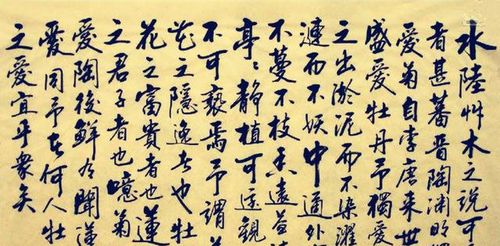 水陸艸木之説可
者甚蕃晉陶淵明
愛菊自李唐来世
盛愛牡丹予獨愛
之出淤泥而不染濯
漣而不妖中通外
不蔓不枝香遠益
亭〻静植可遠觀
不可褻焉予謂
花之隱逸者也牡
花之富貴者也蓮
之君子者也噫菊
愛陶後鮮有聞蓮
愛同予者何人牡
之愛宜乎衆矣